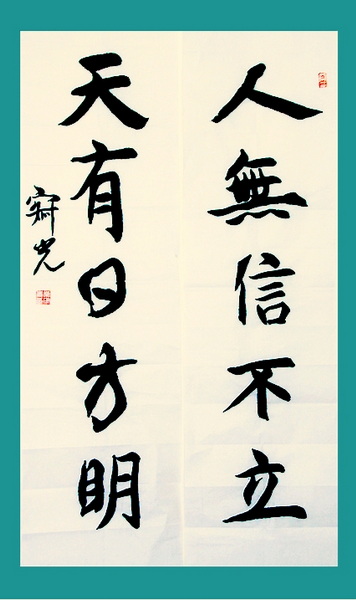 人無信不立
天有日方明
光